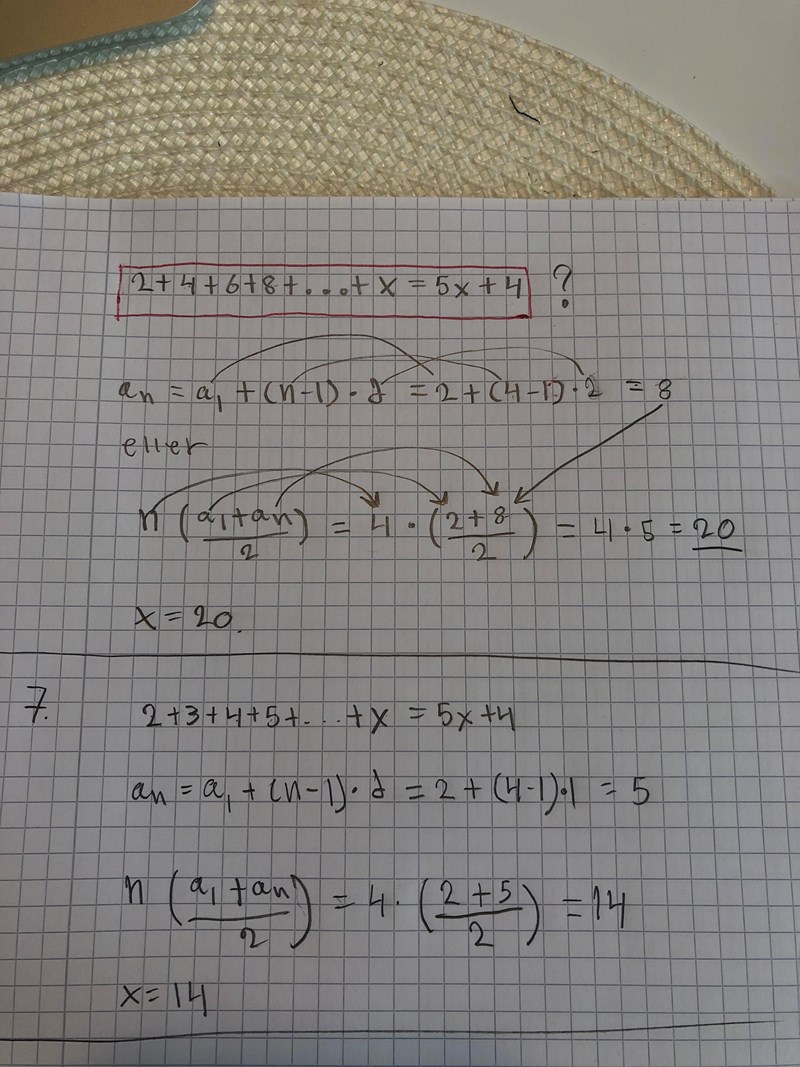 2+4+6+8+...+x = 5x+4 ?
an = a₁ + (n-1)·d = 2+(4-1)·2 = 8
eller
n (a₁+an/2) = 4·(2+8/2) = 4·5 = 20
x = 20.
7. 2+3+4+5+...+x = 5x+4
an = a₁ + (n-1)·d = 2+(4-1)·1 = 5
n (a₁+an/2) = 4·(2+5/2) = 14
x = 14